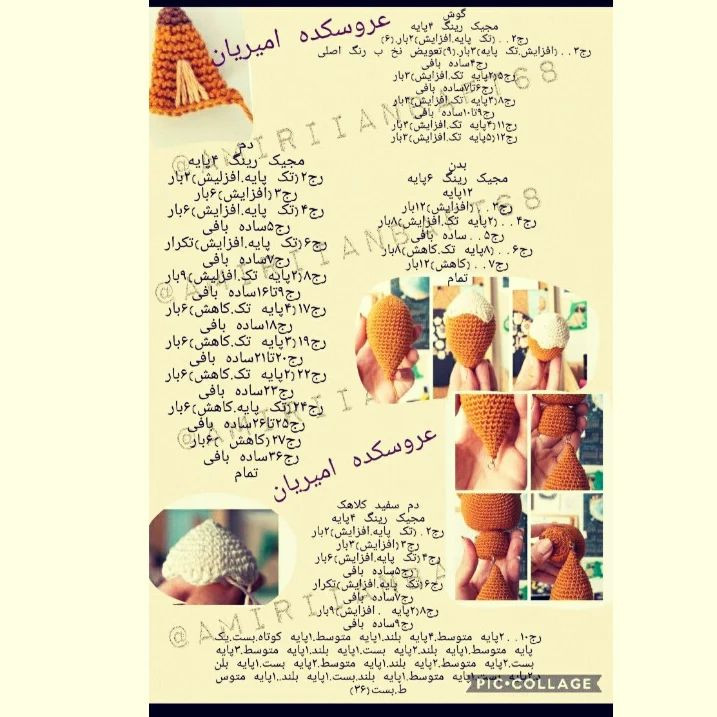 عروسکده امیریان
گوش
مجیک رینگ ۴پایه
رج۲. . (تک پایه.افزایش)۲بار.(۶)
رج۳. . (افزایش.تک پایه)۳بار.(۹)تعویض نخ ب رنگ اصلی
رج۴ساده بافی
رج۵(۲پایه تک.افزایش)۳بار
رج۶تا۷ساده بافی
رج۸(۳پایه تک.افزایش)۳بار
رج۹تا۱۰ساده بافی
رج۱۱(۴پایه تک.افزایش)۳بار
رج۱۲(۵پایه تک.افزایش)۳بار
بدن
مجیک رینگ ۶پایه
۱۲پایه
رج۳. . (افزایش)۱۲بار
رج۴. . (۲پایه تک.افزایش)۸بار
رج۵. . ساده بافی
رج۶. . (۸پایه تک.کاهش)۸بار
رج۷. . (کاهش)۱۲بار
تمام
دم
مجیک رینگ ۴پایه
رج۲(تک پایه.افزایش)۲بار
رج۳(افزایش)۶بار
رج۴(تک پایه.افزایش)۶بار
رج۵ساده بافی
رج۶(تک پایه.افزایش)تکرار
رج۷ساده بافی
رج۸(۲پایه تک.افزایش)۹بار
رج۹تا۱۶ساده بافی
رج۱۷(۴پایه تک.کاهش)۶بار
رج۱۸ساده بافی
رج۱۹(۳پایه تک.کاهش)۶بار
رج۲۰تا۲۱ساده بافی
رج۲۲(۲پایه تک.کاهش)۶بار
رج۲۳ساده بافی
رج۲۴(تک پایه.کاهش)۶بار
رج۲۵تا۲۶ساده بافی
رج۲۷(کاهش )۶بار
رج۳۶ساده بافی
تمام
عروسکده امیریان
دم سفید کلاهک
مجیک رینگ ۴پایه
رج۲. (تک پایه.افزایش)۲بار
رج۳(افزایش)۳بار
رج۴(تک پایه.افزایش)۶بار
رج۵ساده بافی
رج۶(تک پایه.افزایش)تکرار
رج۷ساده بافی
رج۸(۲پایه . افزایش)۹بار
رج۹ساده بافی
رج۱۰. . ۲پایه متوسط.۴پایه بلند.۱پایه متوسط.۱پایه کوتاه.بست.یک
پایه متوسط.۱پایه بلند.۲پایه بست.۱پایه بلند.۱پایه متوسط.۳پایه
بست.۲پایه متوسط.۲پایه بلند.۱پایه متوسط.۲پایه بست.۱پایه بلن
د.۲پایه بست.۱پایه متوسط.۱پایه بلند.بست.۱پایه بلند..۱پایه متوس
ط.بست(۳۶)
PIC•COLLAGE